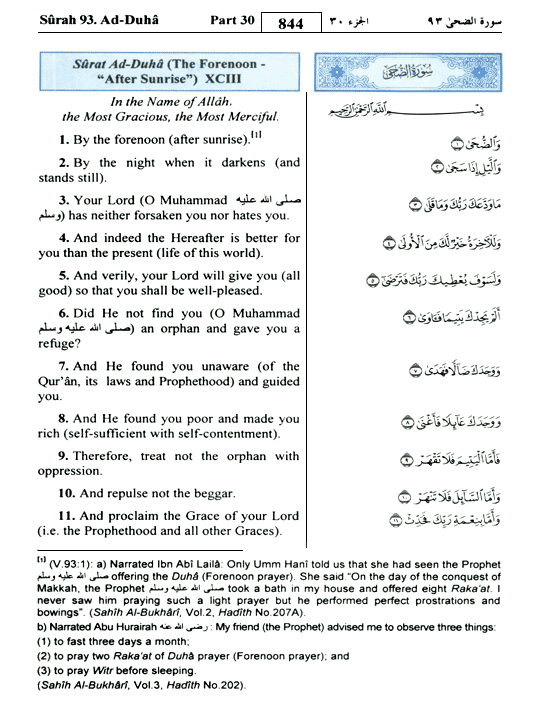 Sûrah 93. Ad-Duhâ Part 30 844 الجزء ٣٠ سورة الضحى ٩٣
Sûrat Ad-Duhâ (The Forenoon -
“After Sunrise”) XCIII
In the Name of Allâh,
the Most Gracious, the Most Merciful.
1. By the forenoon (after sunrise).[1]
2. By the night when it darkens (and
stands still).
3. Your Lord (O Muhammad صلى الله عليه
وسلم) has neither forsaken you nor hates you.
4. And indeed the Hereafter is better for
you than the present (life of this world).
5. And verily, your Lord will give you (all
good) so that you shall be well-pleased.
6. Did He not find you (O Muhammad
صلى الله عليه وسلم) an orphan and gave you a
refuge?
7. And He found you unaware (of the
Qur’ân, its laws and Prophethood) and guided
you.
8. And He found you poor and made you
rich (self-sufficient with self-contentment).
9. Therefore, treat not the orphan with
oppression.
10. And repulse not the beggar.
11. And proclaim the Grace of your Lord
(i.e. the Prophethood and all other Graces).
سُورَةُ الضُّحَىٰ
بِسْمِ اللَّهِ الرَّحْمَٰنِ الرَّحِيمِ
وَالضُّحَىٰ ١
وَاللَّيْلِ إِذَا سَجَىٰ ٢
مَا وَدَّعَكَ رَبُّكَ وَمَا قَلَىٰ ٣
وَلَلْآخِرَةُ خَيْرٌ لَّكَ مِنَ الْأُولَىٰ ٤
وَلَسَوْفَ يُعْطِيكَ رَبُّكَ فَتَرْضَىٰ ٥
أَلَمْ يَجِدْكَ يَتِيمًا فَآوَىٰ ٦
وَوَجَدَكَ ضَالًّا فَهَدَىٰ ٧
وَوَجَدَكَ عَائِلًا فَأَغْنَىٰ ٨
فَأَمَّا الْيَتِيمَ فَلَا تَقْهَرْ ٩
وَأَمَّا السَّائِلَ فَلَا تَنْهَرْ ١٠
وَأَمَّا بِنِعْمَةِ رَبِّكَ فَحَدِّثْ ١١
[1] (V.93:1): a) Narrated Ibn Abî Lailâ: Only Umm Hanî told us that she had seen the Prophet
صلى الله عليه وسلم offering the Duhâ (Forenoon prayer). She said “On the day of the conquest of
Makkah, the Prophet صلى الله عليه وسلم took a bath in my house and offered eight Raka‘at. I
never saw him praying such a light prayer but he performed perfect prostrations and
bowings”. (Sahîh Al-Bukhârî, Vol.2, Hadîth No.207A).
b) Narrated Abu Hurairah رضي الله عنه : My friend (the Prophet) advised me to observe three things:
(1) to fast three days a month;
(2) to pray two Raka‘at of Duhâ prayer (Forenoon prayer); and
(3) to pray Witr before sleeping.
(Sahîh Al-Bukhârî, Vol.3, Hadîth No.202).